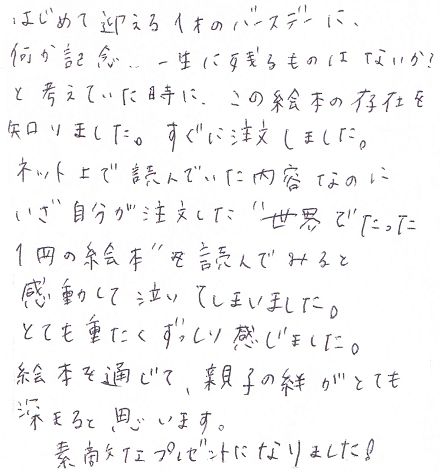 はじめて迎える1才のバースデーに、
何か記念…一生に残るものはないか?
と考えていた時に、この絵本の存在を
知りました。すぐに注文しました。
ネット上で読んでいた内容なのに
いざ自分が注文した"世界でたった
1冊の絵本"を読んでみると
感動して泣いてしまいました。
とても重たくずっしり感じました。
絵本を通じて、親子の絆がとても
深まると思います。
素敵なプレゼントになりました!